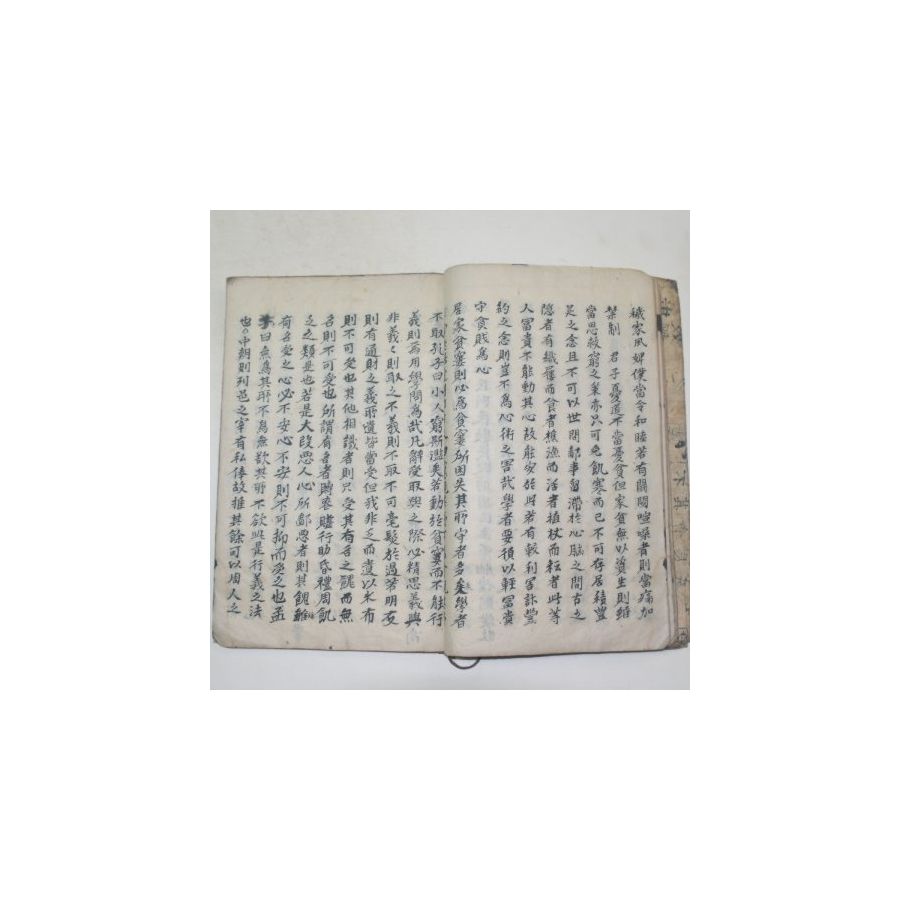 穢家風婢僕當令和睦若有鬪鬩喧噪者則當痛加
禁制 君子憂道不當憂貧但家貧無以資生則雖
當思救窮之策亦只可免飢寒而已不可存居積豐
足之念且不可以世間鄙事留滯於心腦之間古之
隱者有織屨而食者樵漁而活者植杖而耘者此等
人富貴不能動其心故能安於此若有較利害計豐
約之念則豈不爲心術之害哉學者要須以輕富貴
守貧賤爲心
居家貧窶則必爲貧窶所困失其所守者多矣學者
不取孔子曰小人窮斯濫矣若動於貧窶而不能行
義則焉用學問爲哉凡辭受取與之際必精思義與
非義〻則取之不義則不取不可毫髮放過若朋友
則有通財之義所遺皆當受但我非乏而遺以米布
則不可受也其他相識者則只受其有名之饋而無
名則不可受也所謂有名者賻喪贐行助昏禮周飢
乏之類是也若是大段惡人心所鄙惡者則其饋雖
有名受之心必不安心不安則不可抑而受之也孟
子曰無爲其所不爲無欲其所不欲此是行義之法
也○中朝則列邑之宰有私俸故推其餘可以周人之